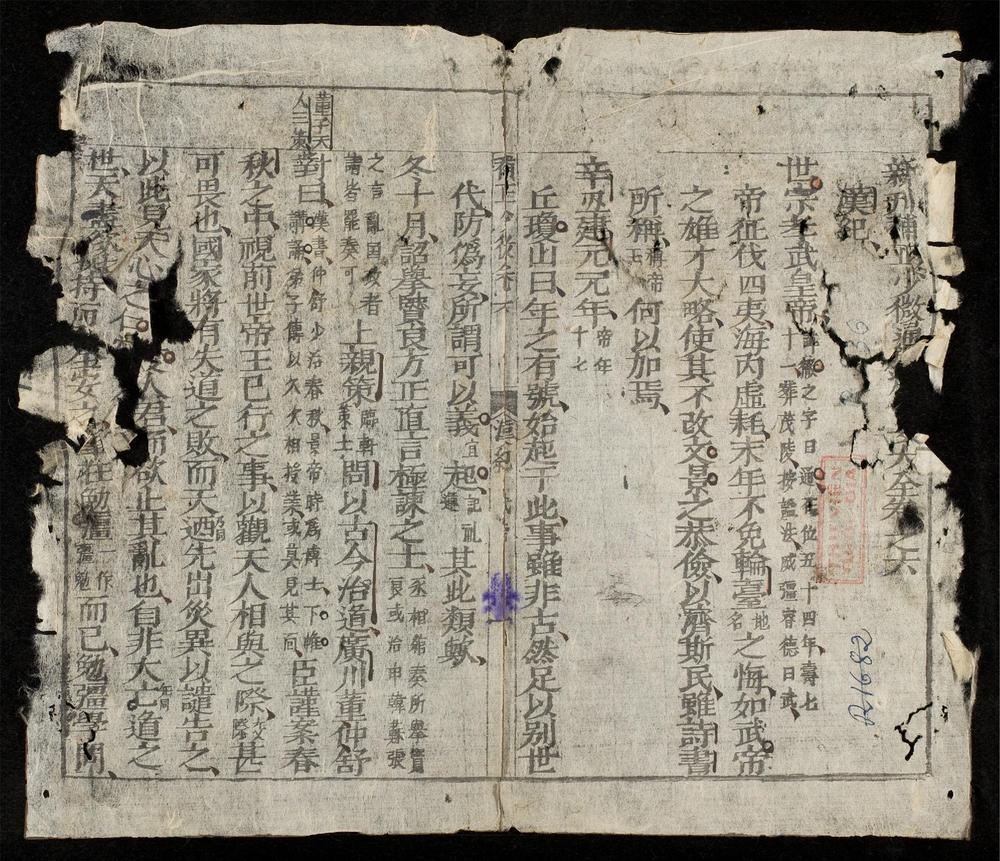 新刊補正少微通史全卷之六
漢紀
世宗孝武皇帝諱徹之字曰通在位五十四年壽七十一葬茂陵按謚法威彊睿德曰武
帝征伐四夷海內虛耗末年不免輪臺地名之悔如武帝
之雄才大略使其不改文景之恭儉以濟斯民雖詩書
所稱稱帝王何以加焉
辛丑建元元年帝年十七
丘瓊山曰年之有號始起于此事雖非古然足以别世
代防僞妄所謂可以義宜起記禮運其此類歟
冬十月詔擧賢良方正直言極諫之士丞相綰奏所擧賢良或治申韓蘇張之言亂國政者請皆罷奏可上親策臨軒策士問以古今治道廣川董仲舒
對曰漢書仲舒少治春秋景帝時爲博士下帷講誦弟子傳以久次相授業或莫見其面臣謹案春
秋之中視前世帝王已行之事以觀天人相與之際甚
可畏也國家將有失道之敗而天迺先出災異以譴告之
以此見天心之仁愛人君而欲止其亂也自非大亡道之
世天盡欲扶持而全安之事在勉彊而已勉彊學問
董子天人三策
漢紀
A21682